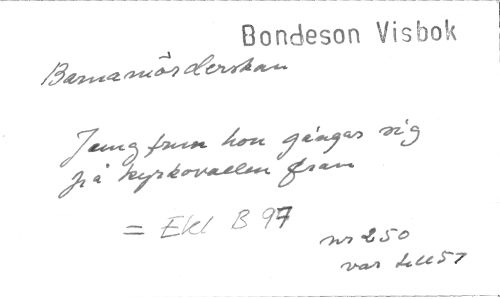 Bondeson Visbok
Barnamörderskan
Jungfrun hon gångar sig
på kyrkovallen fram
= Ekl B 97
nr 250
var till 57